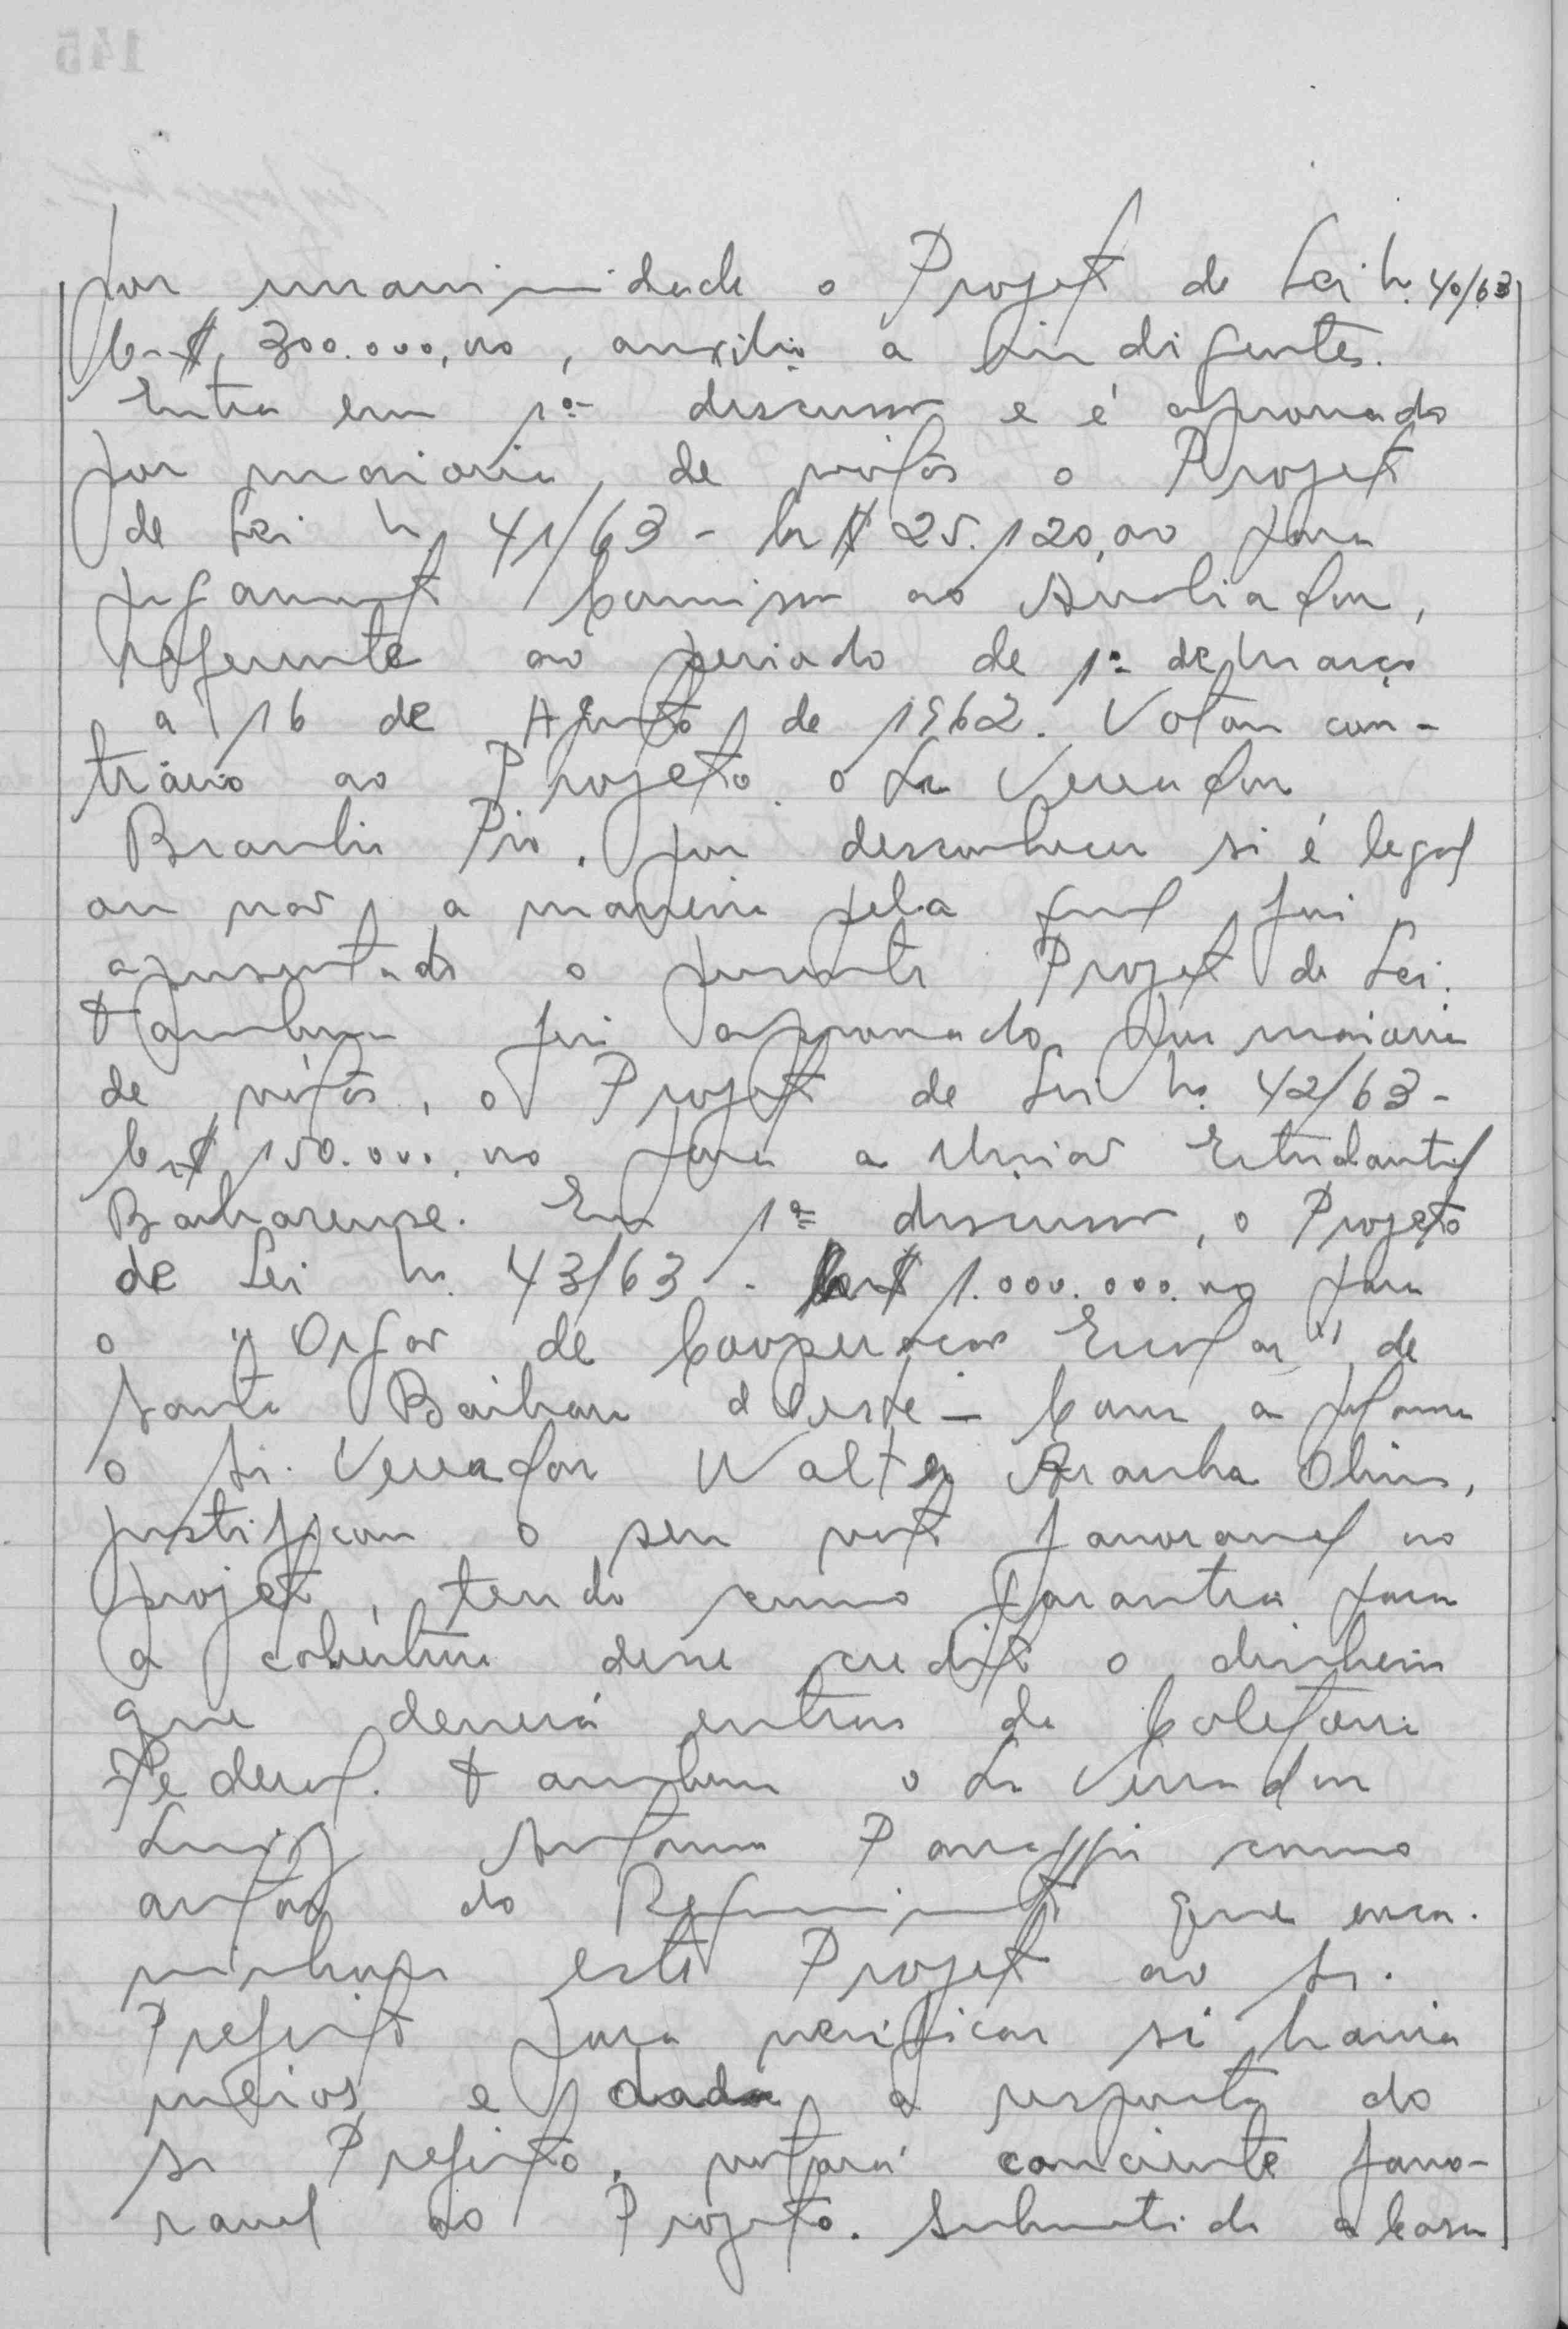 por unanimidade o Projeto de Lei n. 40/63
Cr$ 300.000,00, auxilio a indigentes.
Entra em 1ª discussão e é aprovado
por maioria de votos o Projeto
de Lei n. 41/63 - Cr$ 25.120,00 para
pagamento Comissão ao Avaliador,
referente ao periodo de 1º de março
a 16 de Agosto de 1962. Votou con-
trário ao Projeto o Sr. Vereador
Braulio Pio, por desconhecer si é legal
ou não, a maneira pela qual foi
apresentado o presente Projeto de Lei.
Tambem foi aprovado por maioria
de votos, o Projeto de Lei n. 42/63 -
Cr$ 150.000,00 para a União Estudantil
Barbarense. Em 1ª discussão, o Projeto
de Lei n. 43/63 - Cr$ 1.000.000,00 para
o "Orgão de Cooperação Escolar" de
Santa Bárbara d'Oeste - Com a palavra
o Sr. Vereador Walter Aranha
justificou o seu voto favoravel ao
projeto, tendo como garantia para
a cobertura desse credito o dinheiro
que deverá entrar da Coletoria
Federal. Tambem o Sr. Vereador
Luiz Antonio Panaggio como
autor do Requerimento que enca-
minhou este Projeto ao Sr.
Prefeito para verificar si havia
meios e dada a resposta do
Sr Prefeito, votará conciente favo-
ravel ao Projeto. Submetido a Casa